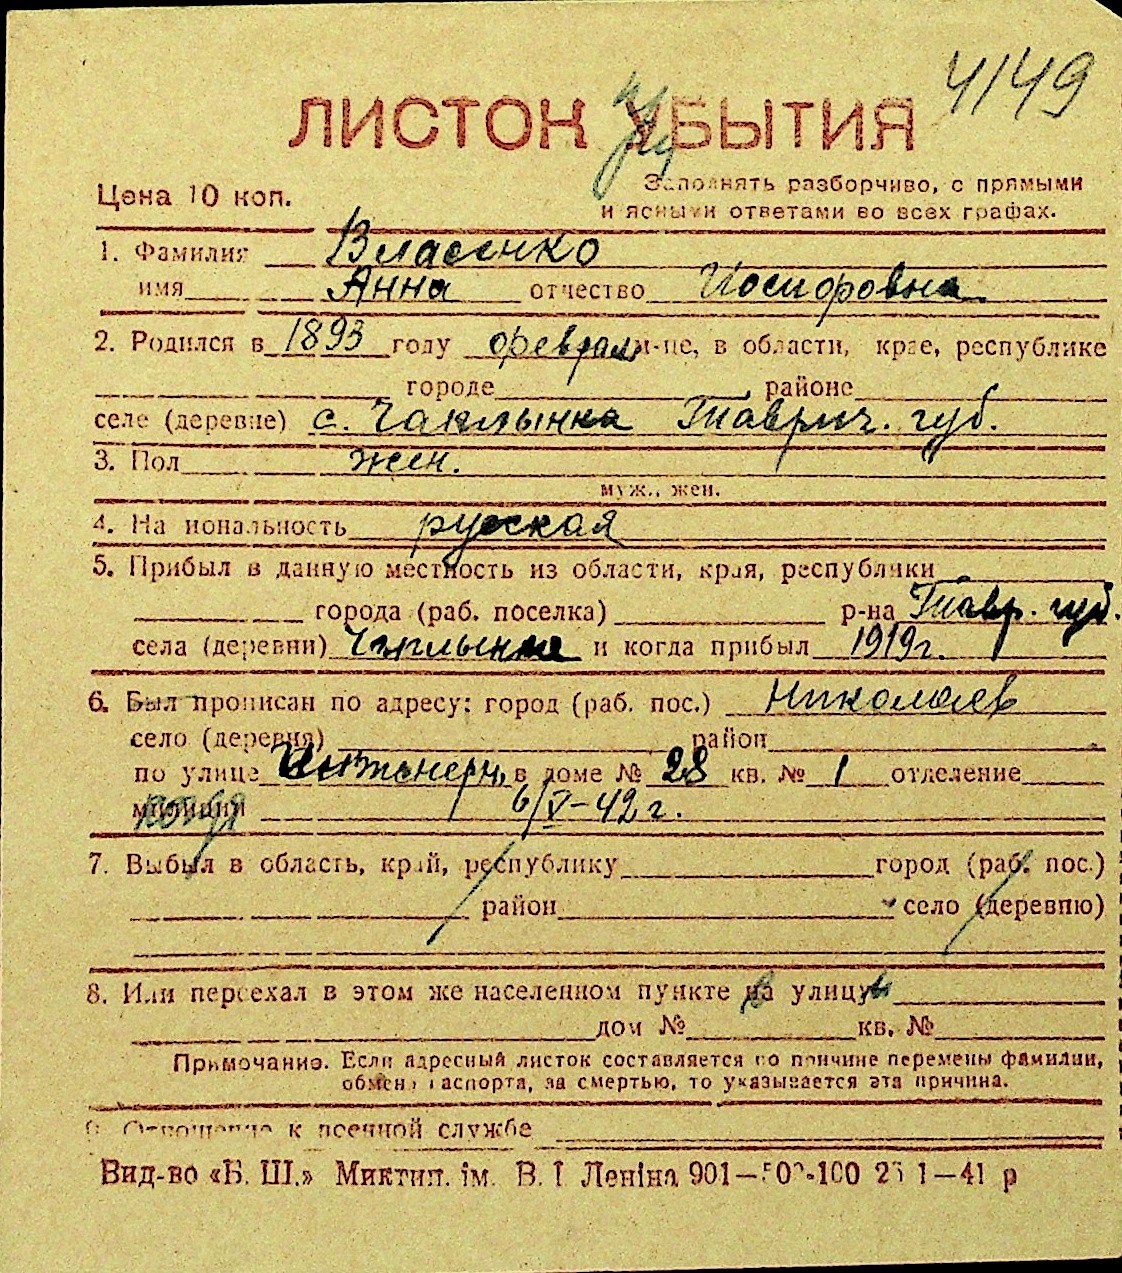 4149
ЛИСТОК УБЫТИЯ
Цена 10 коп.
Заполнять разборчиво, с прямыми
и ясными ответами во всех графах.
1. Фамилия Власенко
имя Анна отчество Иосифовна
2. Родился в 1893 году феврал м-це, в области, крае, республике
городе районе
селе (деревне) с. Чаплынка Таврич. губ.
3. Пол жен.
муж., жен.
4. Национальность русская
5. Прибыл в данную местность из области, края, республики
города (раб. поселка) р-на Тавр. губ.
села (деревни) Чаплынка и когда прибыл 1919г.
6. Был прописан по адресу: город (раб. пос.) Николаев
село (деревня) район
по улице Инженерн. в доме № 28 кв. № 1 отделение
милиции когда 6/V-42 г.
7. Выбыл в область, край, республику город (раб. пос.)
район село (деревню)
8. Или переехал в этом же населенном пункте на улицу
дом № кв. №
Примечание. Если адресный листок составляется по причине перемены фамилии,
обмена паспорта, за смертью, то указывается эта причина.
9. Отношение к военной службе
Вид-во «Б. Ш.» Миктип. ім. В. І Леніна 901—50 -100 2 1—41 р